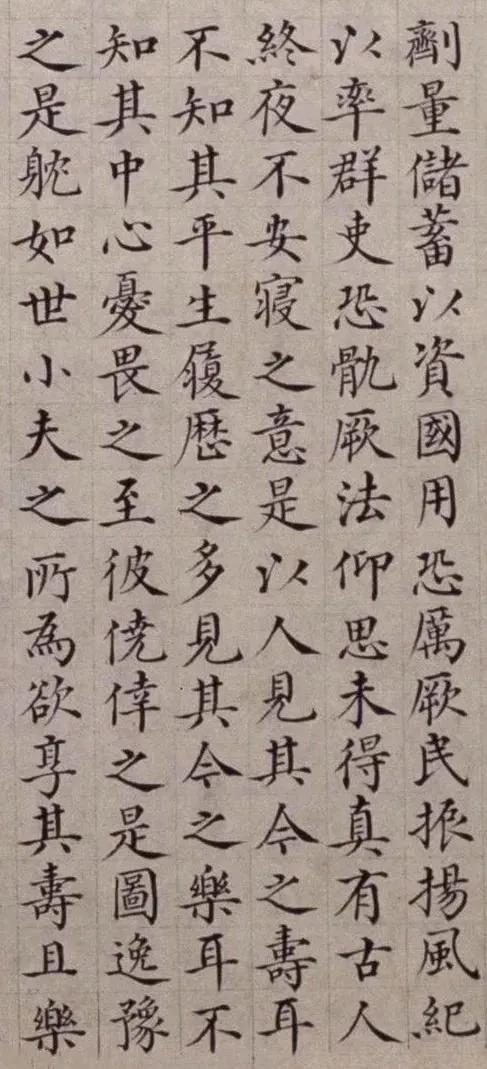 劑量儲蓄以資國用恐厲厥民振揚風紀
以率群吏恐骫厥法仰思未得真有古人
終夜不安寢之意是以人見其今之壽耳
不知其平生履歷之多見其今之樂耳不
知其中心憂畏之至彼僥倖之是圖逸豫
之是躭如世小夫之所為欲享其壽且樂